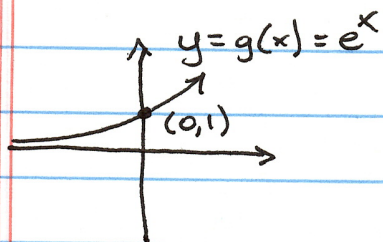 y = g(x) = e^x
(0,1)